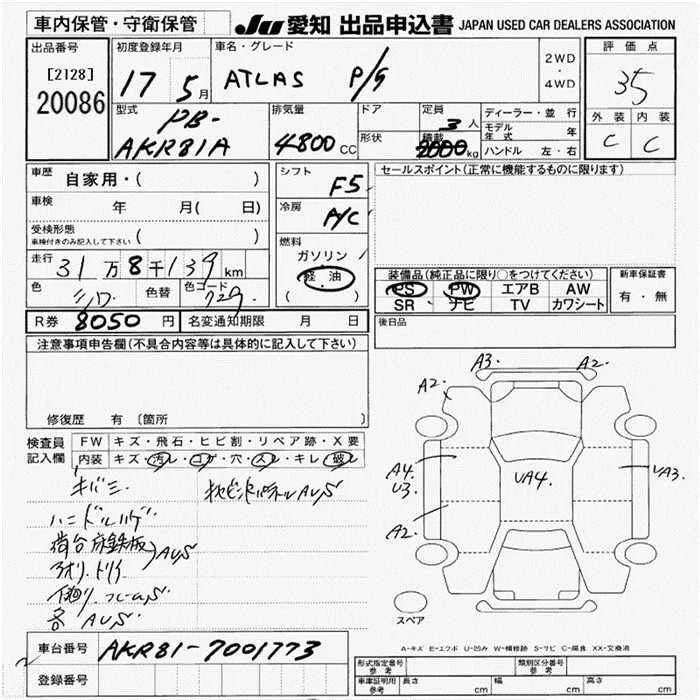 車内保管・守衛保管
JU 愛知 出品申込書 JAPAN USED CAR DEALERS ASSOCIATION
出品番号
[2128]
20086
初度登録年月
17 5月
車名・グレード
ATLAS P/G
2WD
・
4WD
評価点
35
外装 内装
C C
型式
PB-
AKR81A
排気量
4800cc
ドア
形状
定員
3人
積載
2000kg
ディーラー・並行
モデル年式 年
ハンドル 左・右
車歴
自家用・( )
車検
年 月( 日)
受検形態
車検付きのみ記入して下さい ( )
走行
31万8千139km
色
シロ
色替
色コード
729
シフト
F5
冷房
A/C
燃料
ガソリン
軽油
( )
セールスポイント(正常に機能するものに限ります)
装備品(純正品に限り○をつけてください)
PS PW エアB AW
SR ナビ TV カワシート
新車保証書
有・無
R券 8050円 名変通知期限 月 日
後日品
注意事項申告欄(不具合内容等は具体的に記入して下さい)
修復歴 有 〔箇所 〕
検査員
記入欄
FW キズ・飛石・ヒビ割・リペア跡・X要
内装 キズ・汚レ・コゲ・穴・スレ・キレ・破レ
キバミ
ハンドルハゲ
荷台床鉄板
アオリ.トリイ AUS
AUS
各 AUS
A3. A2.
A2.
A4.
U3
UA4.
UA3.
A2.
スペア
A-キズ E-エクボ U-凹み W-補修跡 S-サビ C-腐食 XX-交換済
車台番号 AKR81-7001773
登録番号
形式指定番号
参考
類別区分番号
参考
車庫証明用
参考
長さ cm 幅 cm 高さ cm